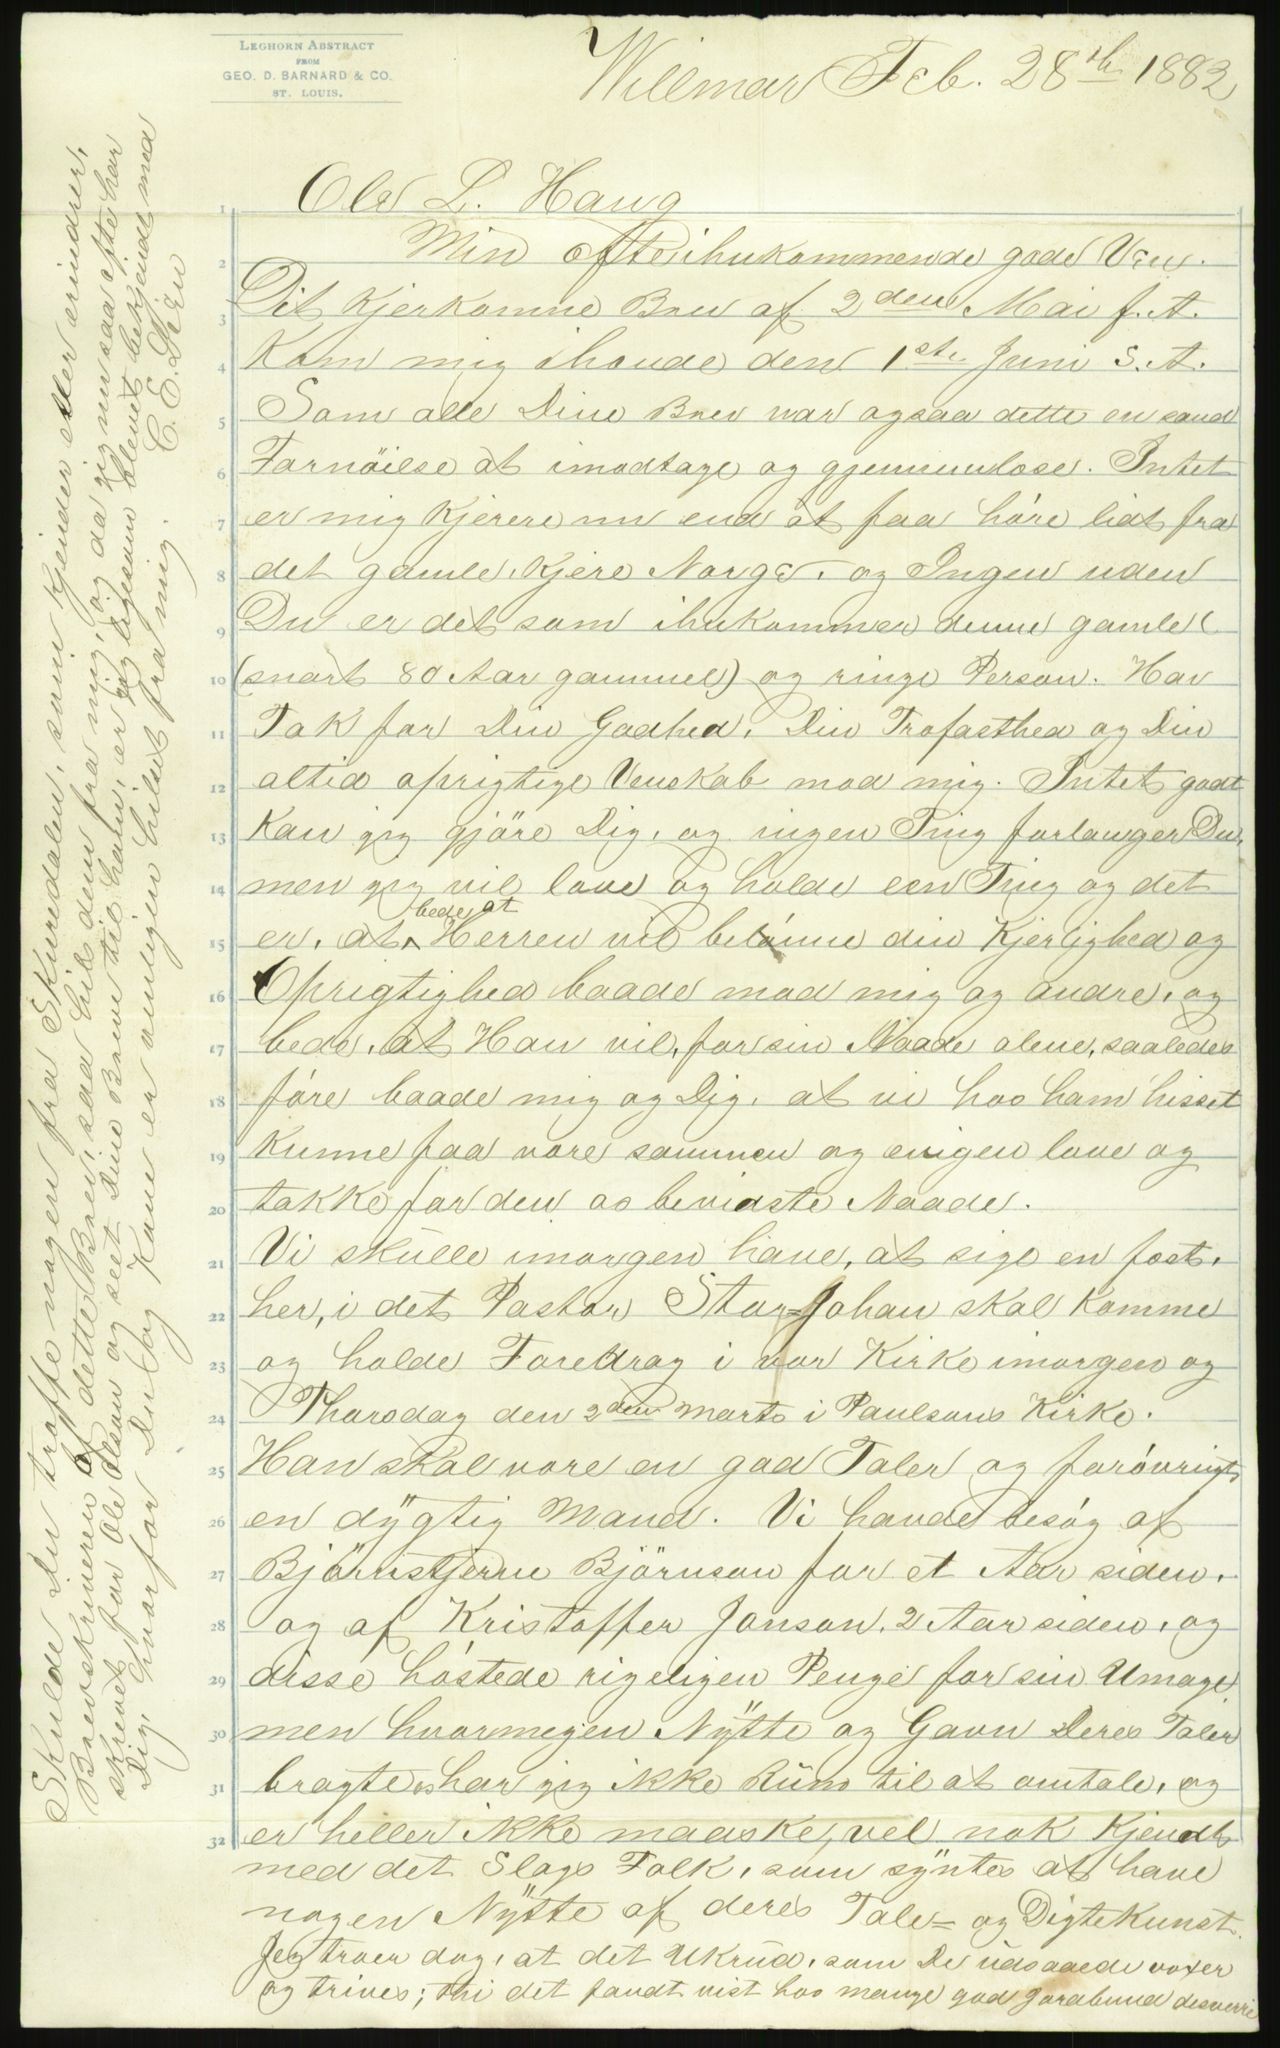 LEGHORN ABSTRACT
FROM
GEO. D. BARNARD & CO.
ST. LOUIS.
Willmar Feb. 28th 1882
Ole L. Haug
Min ofte ihukommende gode Ven.
Dit Kjerkomne Brev af 2den Mai f. A.
Kom mig ihænde den 1ste Juni s. A.
Som alle Dine Brev var ogsaa dette en sand
Fornöielse at imodtage og gjennemlæse. Intet
er mig Kjerere nu end at faa höre lidt fra
det gamle, Kjere Norge, og Ingen uden
Du er det som ihukommer denne gamle
(snart 80 Aar gammel) og ringe Person. Hav
Tak for Din Godhed, Din Trofasthed og Din
altid oprigtige Venskab mod mig. Intet godt
Kan jeg gjöre Dig, og ingen Ting forlanger Du,
men jeg vil love og holde een Ting og det
er, at bede at Herren vil belönne din Kjerlighed og
Oprigtighed baade mod mig og andre, og
bede, at Han vil, for sin Naade alene, saaledes
före baade mig og Dig, at vi hos ham hisset
Kunne faa være sammen og evigen love og
takke for den os beviaste Naade.
Vi skulle imorgen have, at sige en fæst,
her, i det Pastor Stor=Johan skal komme
og holde Foredrag i vor Kirke imorgen og
Thorsdag den 2den Marts i Paulsons Kirke.
Han skal være en god Taler og forövrigt
en dÿgtig Mand. Vi havde besög af
Björnstjerne Björnson for et Aar siden,
og af Kristoffer Janson, 2 Aar siden, og
disse höstede rigeligen Penge for sin Umage
men hvormegen Nÿtte og Gavn Deres Taler
bragte os har jeg ikke Rüm til at omtale, og
er heller ikke maaske, vel nok Kjendt
med det Slags Folk, som sÿntes at have
nogen Nÿtte af deres Tale= og Digtekunst.
Jeg troer dog, at det Ukrüd, som De üdsaaede voxer
og trives; thi det fandt vist hos mange god Jordbund desverre
Skulde Du træffe nogen fra Skuredalen, som Kjender eller erindrer,
Brevskriveren af dette Brev, saa hils dem fra mig, og da jeg nu saa ofte har
skrevet for Ole Olson og seet Dine Breve til ham, er jeg ligesom blevet bekjendt med
Dig, hvorfor Du og Kone er venligen hilset fra mig.
C. E. Lien